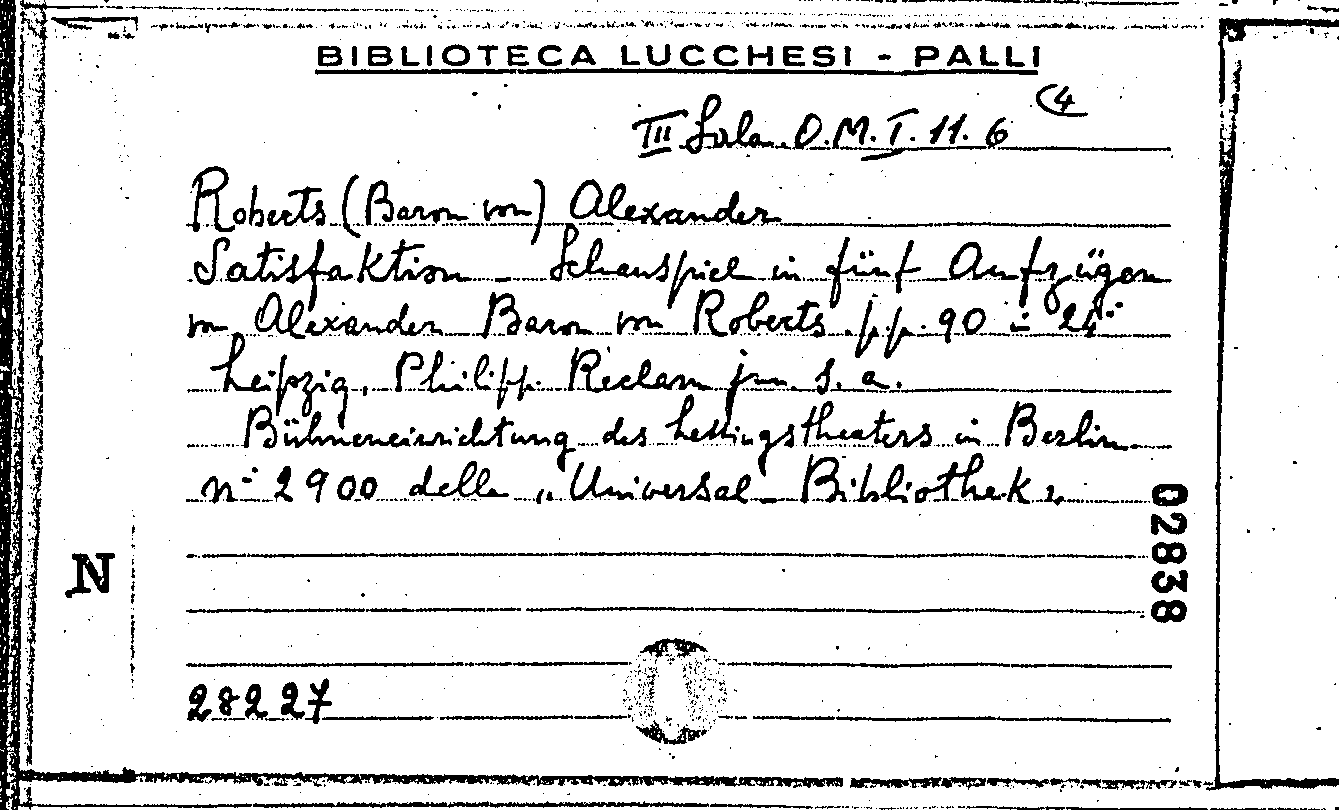 BIBLIOTECA LUCCHESI - PALLI
III Sala. O.M.I. 11. 6 (4
Roberts (Baron von) Alexander
Satisfaktion - Schauspiel in fünf Aufzügen
von Alexander Baron von Roberts. p.p. 90 in 24°
Leipzig, Philipp. Reclam jun. s. a.
Bühneneinrichtung des Lessingstheaters in Berlin
n° 2900 della „Universal-Bibliothek"
02838
N
28227